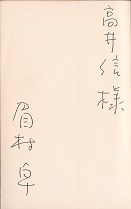 高井信様
眉村卓